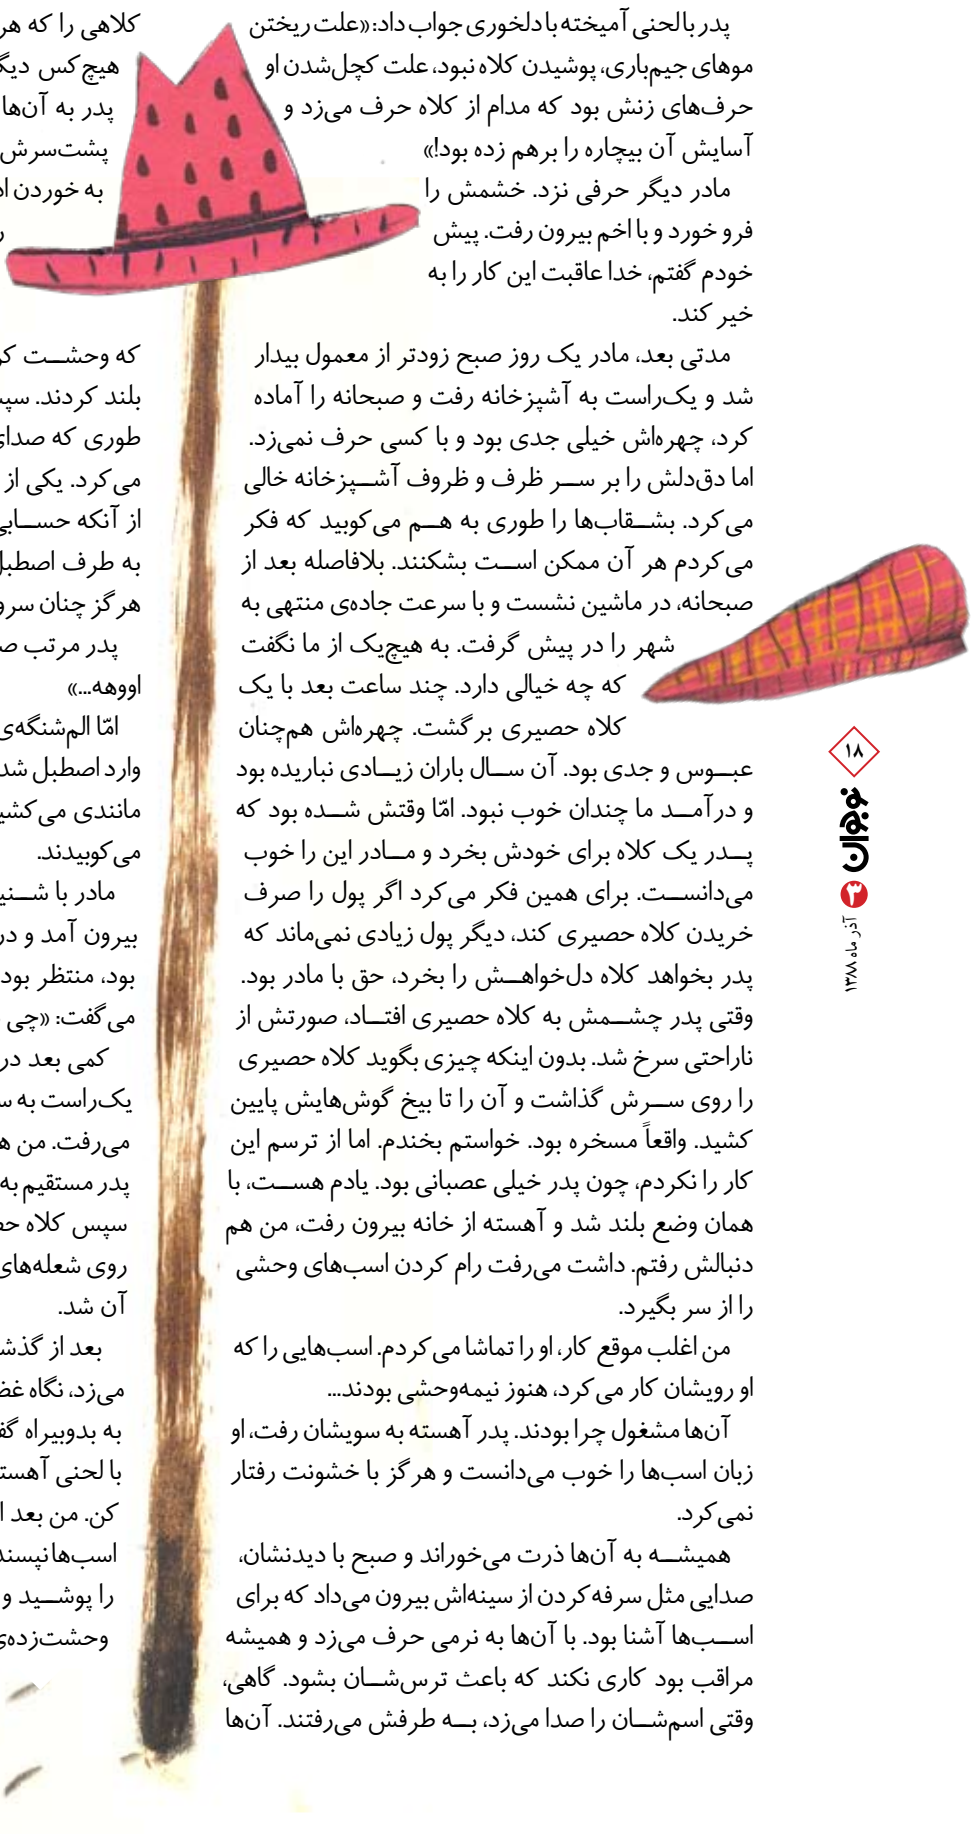 پدر با لحنی آمیخته با دلخوری جواب داد: «علت ریختن
موهای جیم‌باری، پوشیدن کلاه نبود، علت کچل‌شدن او
حرف‌های زنش بود که مدام از کلاه حرف می‌زد و
آسایش آن بیچاره را برهم زده بود!»
مادر دیگر حرفی نزد. خشمش را
فرو خورد و با اخم بیرون رفت. پیش
خودم گفتم، خدا عاقبت این کار را به
خیر کند.
مدتی بعد، مادر یک روز صبح زودتر از معمول بیدار
شد و یک‌راست به آشپزخانه رفت و صبحانه را آماده
کرد، چهره‌اش خیلی جدی بود و با کسی حرف نمی‌زد.
اما دق‌دلش را بر ســر ظرف و ظروف آشــپزخانه خالی
می‌کرد. بشــقاب‌ها را طوری به هــم می‌کوبید که فکر
می‌کردم هر آن ممکن اســت بشکنند. بلافاصله بعد از
صبحانه، در ماشین نشست و با سرعت جاده‌ی منتهی به
شهر را در پیش گرفت. به هیچ‌یک از ما نگفت
که چه خیالی دارد. چند ساعت بعد با یک
کلاه حصیری برگشت. چهره‌اش هم‌چنان
عبــوس و جدی بود. آن ســال باران زیــادی نباریده بود
و درآمــد ما چندان خوب نبود. امّا وقتش شــده بود که
پــدر یک کلاه برای خودش بخرد و مــادر این را خوب
می‌دانســت. برای همین فکر می‌کرد اگر پول را صرف
خریدن کلاه حصیری کند، دیگر پول زیادی نمی‌ماند که
پدر بخواهد کلاه دل‌خواهــش را بخرد، حق با مادر بود.
وقتی پدر چشــمش به کلاه حصیری افتــاد، صورتش از
ناراحتی سرخ شد. بدون اینکه چیزی بگوید کلاه حصیری
را روی ســرش گذاشت و آن را تا بیخ گوش‌هایش پایین
کشید. واقعاً مسخره بود. خواستم بخندم. اما از ترسم این
کار را نکردم، چون پدر خیلی عصبانی بود. یادم هســت، با
همان وضع بلند شد و آهسته از خانه بیرون رفت، من هم
دنبالش رفتم. داشت می‌رفت رام کردن اسب‌های وحشی
را از سر بگیرد.
من اغلب موقع کار، او را تماشا می‌کردم. اسب‌هایی را که
او رویشان کار می‌کرد، هنوز نیمه‌وحشی بودند...
آن‌ها مشغول چرا بودند. پدر آهسته به سویشان رفت، او
زبان اسب‌ها را خوب می‌دانست و هرگز با خشونت رفتار
نمی‌کرد.
همیشــه به آن‌ها ذرت می‌خوراند و صبح با دیدنشان،
صدایی مثل سرفه‌کردن از سینه‌اش بیرون می‌داد که برای
اســب‌ها آشنا بود. با آن‌ها به نرمی حرف می‌زد و همیشه
مراقب بود کاری نکند که باعث ترس‌شــان بشود. گاهی،
وقتی اسم‌شــان را صدا می‌زد، بــه طرفش می‌رفتند. آن‌ها
کلاهی را که هر
هیچ‌کس
پدر به آن‌ها
پشت‌سرش
به خوردن
که وحشــت
بلند کردند.
طوری که
می‌کرد. یکی از
از آنکه
به طرف
هرگز چنان
پدر مرتب
اووهه...»
امّا الم‌شنگه‌ی
وارد اصطبل
مانندی
می‌کوبیدند.
مادر با
بیرون آمد و
بود، منتظر بود
می‌گفت: «چی
کمی بعد در
یک‌راست به
می‌رفت. من
پدر مستقیم به
سپس کلاه
روی شعله‌های
آن شد.
بعد از
می‌زد، نگاه
به بدوبیراه
با لحنی
کن. من بعد
اسب‌ها
را پوشــید و
۱۸
نوجوان
۳
آذر ماه ۱۳۸۸